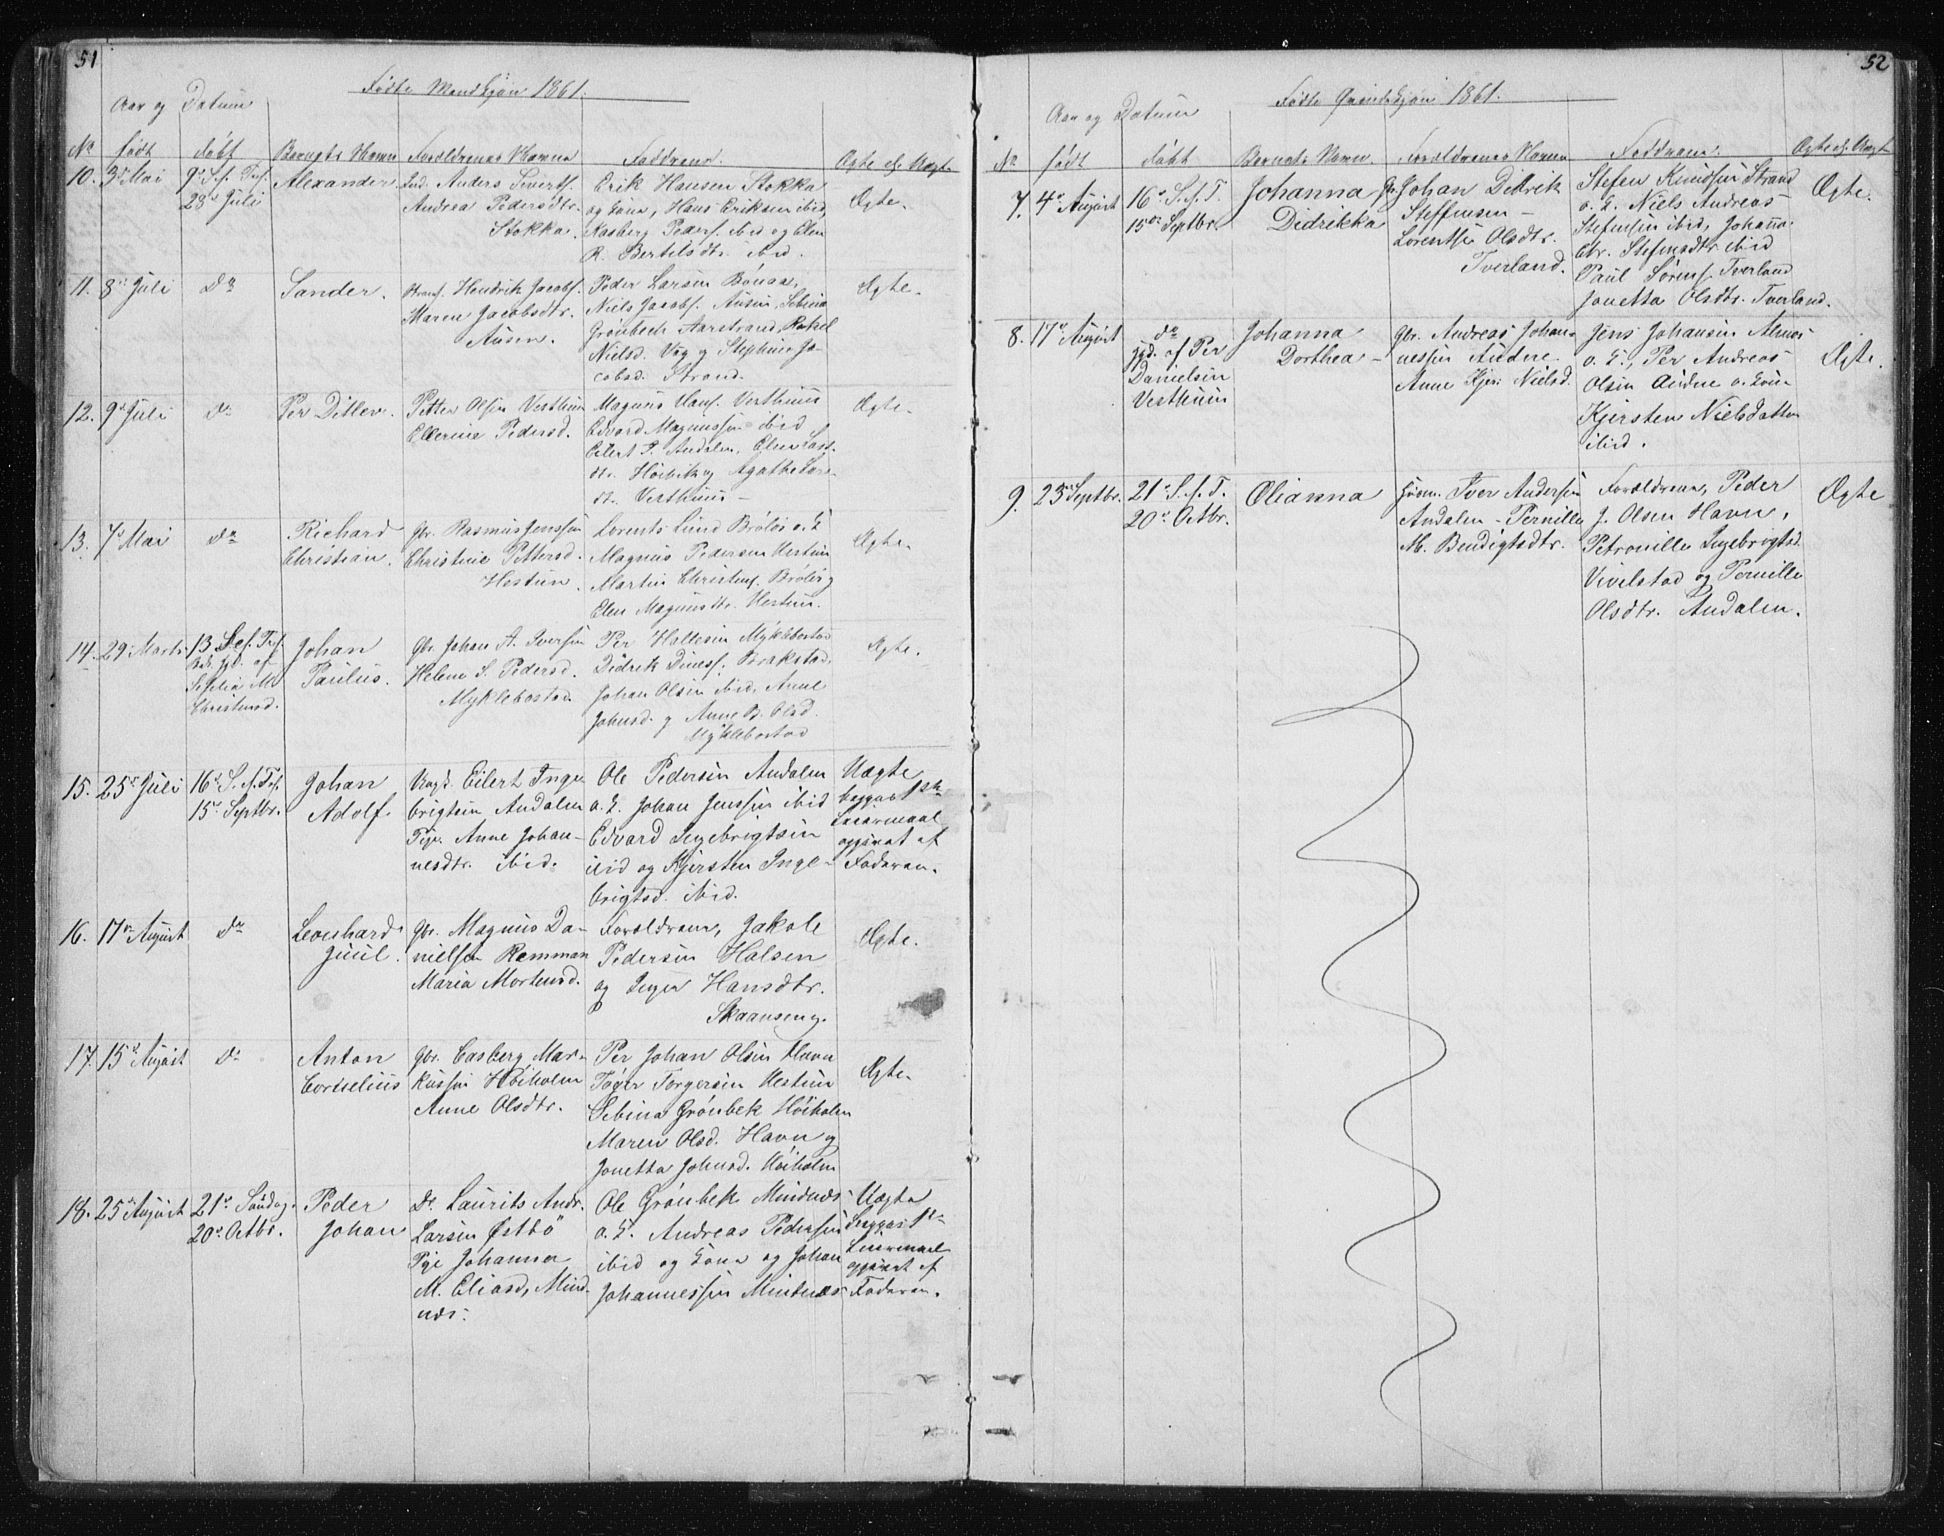 51
Fødte Mandkjøn 1861.
Aar og Datum
No født døbt Barnets Navn Forældrenes Navne Faddrene. Ægte el. Uægte
10. 3d Mai 9de S. e. Tref. 28de Juli Alexander Ind. Anders Sivertf.
Andrea Pedersdtr.
Stokka.
Erik Hansen Stokka
og Kona, Hans Eriksen ibid,
Kasberg Peders. ibid og Elen
R. Bertelsdtr. ibid.
Ægte.
11. 8de Juli do Sander. Hendrik Jacobs.
Maren Jacobsdtr.
Ausen.
Peder Larsen
Niels Jacobs. Ausen, Sebina
Grönbech Aarstrand, Rakel
Nielsd. Vog og Stephine Ja-
cobsd. Strand.
Ægte.
12. 9de Juli do Per Ditlev. Petter Olsen Vesthuus
Ellerine Pedersd.
Magnus Hans. Vesthuus
Edvard Magnussen ibid
Eilert P. Andalen, Elen
dtr. Höivik og Agathe
dtr. Vesthuus
Ægte.
13. 7de Mai do Richard
Christian.
Gbr. Rasmus Jenssen
Christine Pettersd.
Hestun.
Lorents Lund Bröløs o. K.
Magnus Pedersen Hestun
Martin Christens. Bröløs og
Elen Magnusdtr. Hestun.
Ægte.
14. 29 Marts 13 S. ef. Tref.
af
M.
Christensd.
Johan
Paulus.
Gbr. Johan A. Iversen
Helene S. Pedersd.
Myklebostad
Per Hallesen Myklebostad
Didrik Dines. Brakstad,
Johan Olsen ibid, Anne
Johnsd. og Anne B. Olsd.
Myklebostad
Ægte.
15. 25de Juli 16de S. e. Tref.
15de Septbr.
Johan
Adolf.
Ungk. Eilert Inge-
brigtsen Andalen
Pige. Anne Johan-
nesdtr. ibid.
Ole Pedersen Andalen
o. K. Johan Jenssen ibid
Edvard Ingebrigtsen
ibid og Kjersten Inge-
brigtsd. ibid.
Uægte
begges 1ste
Leiermaal
opgivet af
Faderen.
16. 17de August do Leonhard
Juul.
Gbr. Magnus Da-
nielsen Remman
Maria Mortensd.
Forældrene, Jakob
Pedersen Halsen
og Inger Hansdtr.
Skaanseng.
Ægte.
17. 15de August do Anton
Cornelius
Gbr. Casberg Mar-
kussen Höiholm
Anne Olsdtr.
Per Johan Olsen Havn
Töger Torgersen Hestun
Sebina Grönbek Höiholm
Maren Olsd. Havn og
Jonetta Johnsd. Höiholm
Ægte.
18. 25de August 21de Söndag.
20de Octbr.
Peder
Johan
Dr. Laurits Andr.
Larsen Østbö
Pige Johanna
M. Eliasd, Mind-
næs.
Ole Grönbek Mindnæs
o. K. Andreas Pedersen
ibid og Kona og Johan
Johannessen Mindnæs
Uægte
begges 1ste
Leiermaal
opgivet af
Faderen.
52
Fødte Qvindekjøn 1861.
Aar og Datum
No født døbt Barnets Navn. Forældrenes Navne Faddrene. Ægte el. Uægte
7. 4de August 16de S. e. T.
15de Septbr.
Johanna
Didrikka
Gbr. Johan Didrik
Steffensen -
Lorentse Olsdtr.
Tverland.
Stefen Knudsen Strand
o. K. Niels Andreas
Stefensen ibid, Johanna
Chr. Stefensdtr. ibid
Paul Sørens. Tverland
Jonetta Olsdtr. Tverland.
Ægte.
8. 17de August do
hjd. af Per
Danielsen
Vesthuun
Johanna
Dorthea -
Gbr. Andreas Johan-
nessen Audne
Anne Kjer. Nielsd.
Jens Johansen Alnes
o. K., Per Andreas
Olsen Audne o. Kone
Kjersten Nielsdatter
ibid.
Ægte.
9. 23de Septbr. 21de S. e. T.
20de Octbr.
Olianna
Huusm. Iver Andersen
Andalen - Pernille
M. Bendigtsdtr.
Forældrene, Peder
J. Olsen Havn,
Petronille Ingebrigtsd.
Vivelstad og Pernille
Olsdtr. Andalen.
Ægte